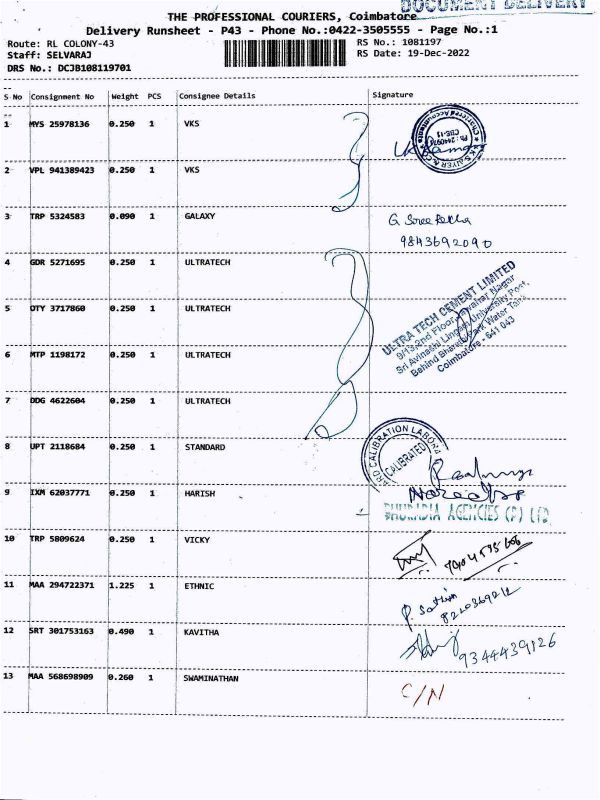 DOCUMENT DELIVERY
THE PROFESSIONAL COURIERS, Coimbatore
Delivery Runsheet - P43 - Phone No.:0422-3505555 - Page No.:1
Route: RL COLONY-43 RS No.: 1081197
Staff: SELVARAJ RS Date: 19-Dec-2022
DRS No.: DCJB108119701
S No Consignment No Weight PCS Consignee Details Signature
1 MYS 25978136 0.250 1 VKS
2 VPL 941389423 0.250 1 VKS
3 TRP 5324583 0.090 1 GALAXY G Sree Rekha
9843692090
4 GDR 5271695 0.250 1 ULTRATECH
5 OTY 3717860 0.250 1 ULTRATECH
6 MTP 1198172 0.250 1 ULTRATECH
ULTRA TECH CEMENT LIMITED
9/13, 2nd Floor, Jawahar Nagar
Sri Avinashi Lingam University Post,
Behind Bharathi Park Water Tank
Coimbatore - 641 043
7 DDG 4622604 0.250 1 ULTRATECH
8 UPT 2118684 0.250 1 STANDARD
CALIBRATION LABORA
CALIBRATED
9 IXM 62037771 0.250 1 HARISH
AGENCIES (P) LTD
10 TRP 5809624 0.250 1 VICKY
11 MAA 294722371 1.225 1 ETHNIC P. Sathia
12 SRT 301753163 0.490 1 KAVITHA 9344439126
13 MAA 568698909 0.260 1 SWAMINATHAN C/N